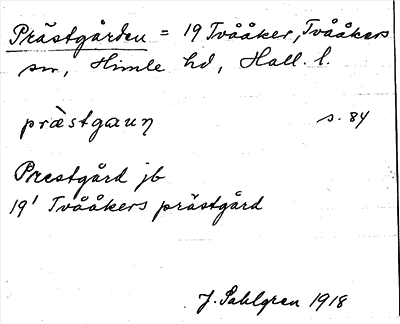 Prästgården = 19 Tvååker, Tvååkers
sn, Himle hd, Hall. l.
prästgaun s. 84
Prestgård jb
19¹ Tvååkers prästgård
J. Sahlgren 1918